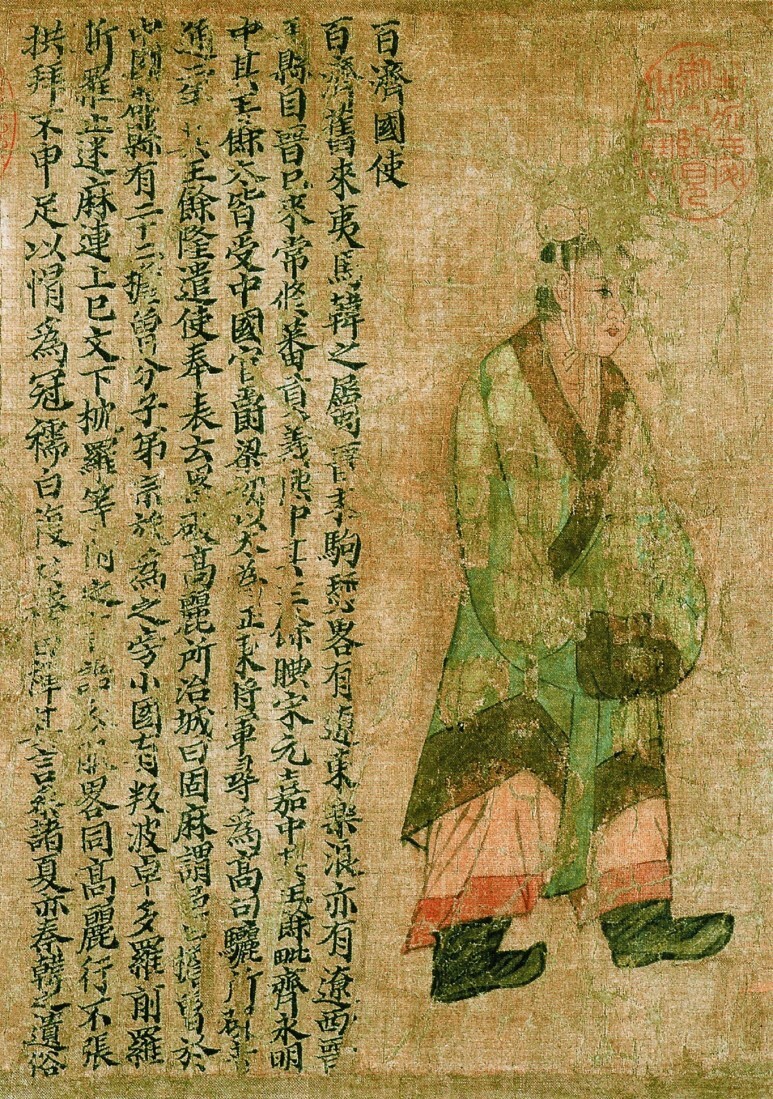 百濟國使
百濟舊來夷馬韓之屬晉末駒驪畧有遼東樂浪亦有遼西晉
平縣自晉已來常修蕃貢義熙中其王餘腆宋元嘉中其王餘毗齊永明
中其王餘太皆受中國官爵梁初以太爲征東將軍尋爲高句驪所破普
通二年其王餘隆遣使奉表云累破高麗所治城曰固麻謂邑曰檐魯於
中國郡縣有二十二檐魯分子弟宗族爲之旁小國有叛波卓多羅前羅
斯羅止迷麻連上巳文下枕羅等附之言語衣服畧同高麗行不張
拱拜不申足以帽爲冠襦曰複衫袴曰褌其言參諸夏亦秦韓之遺俗